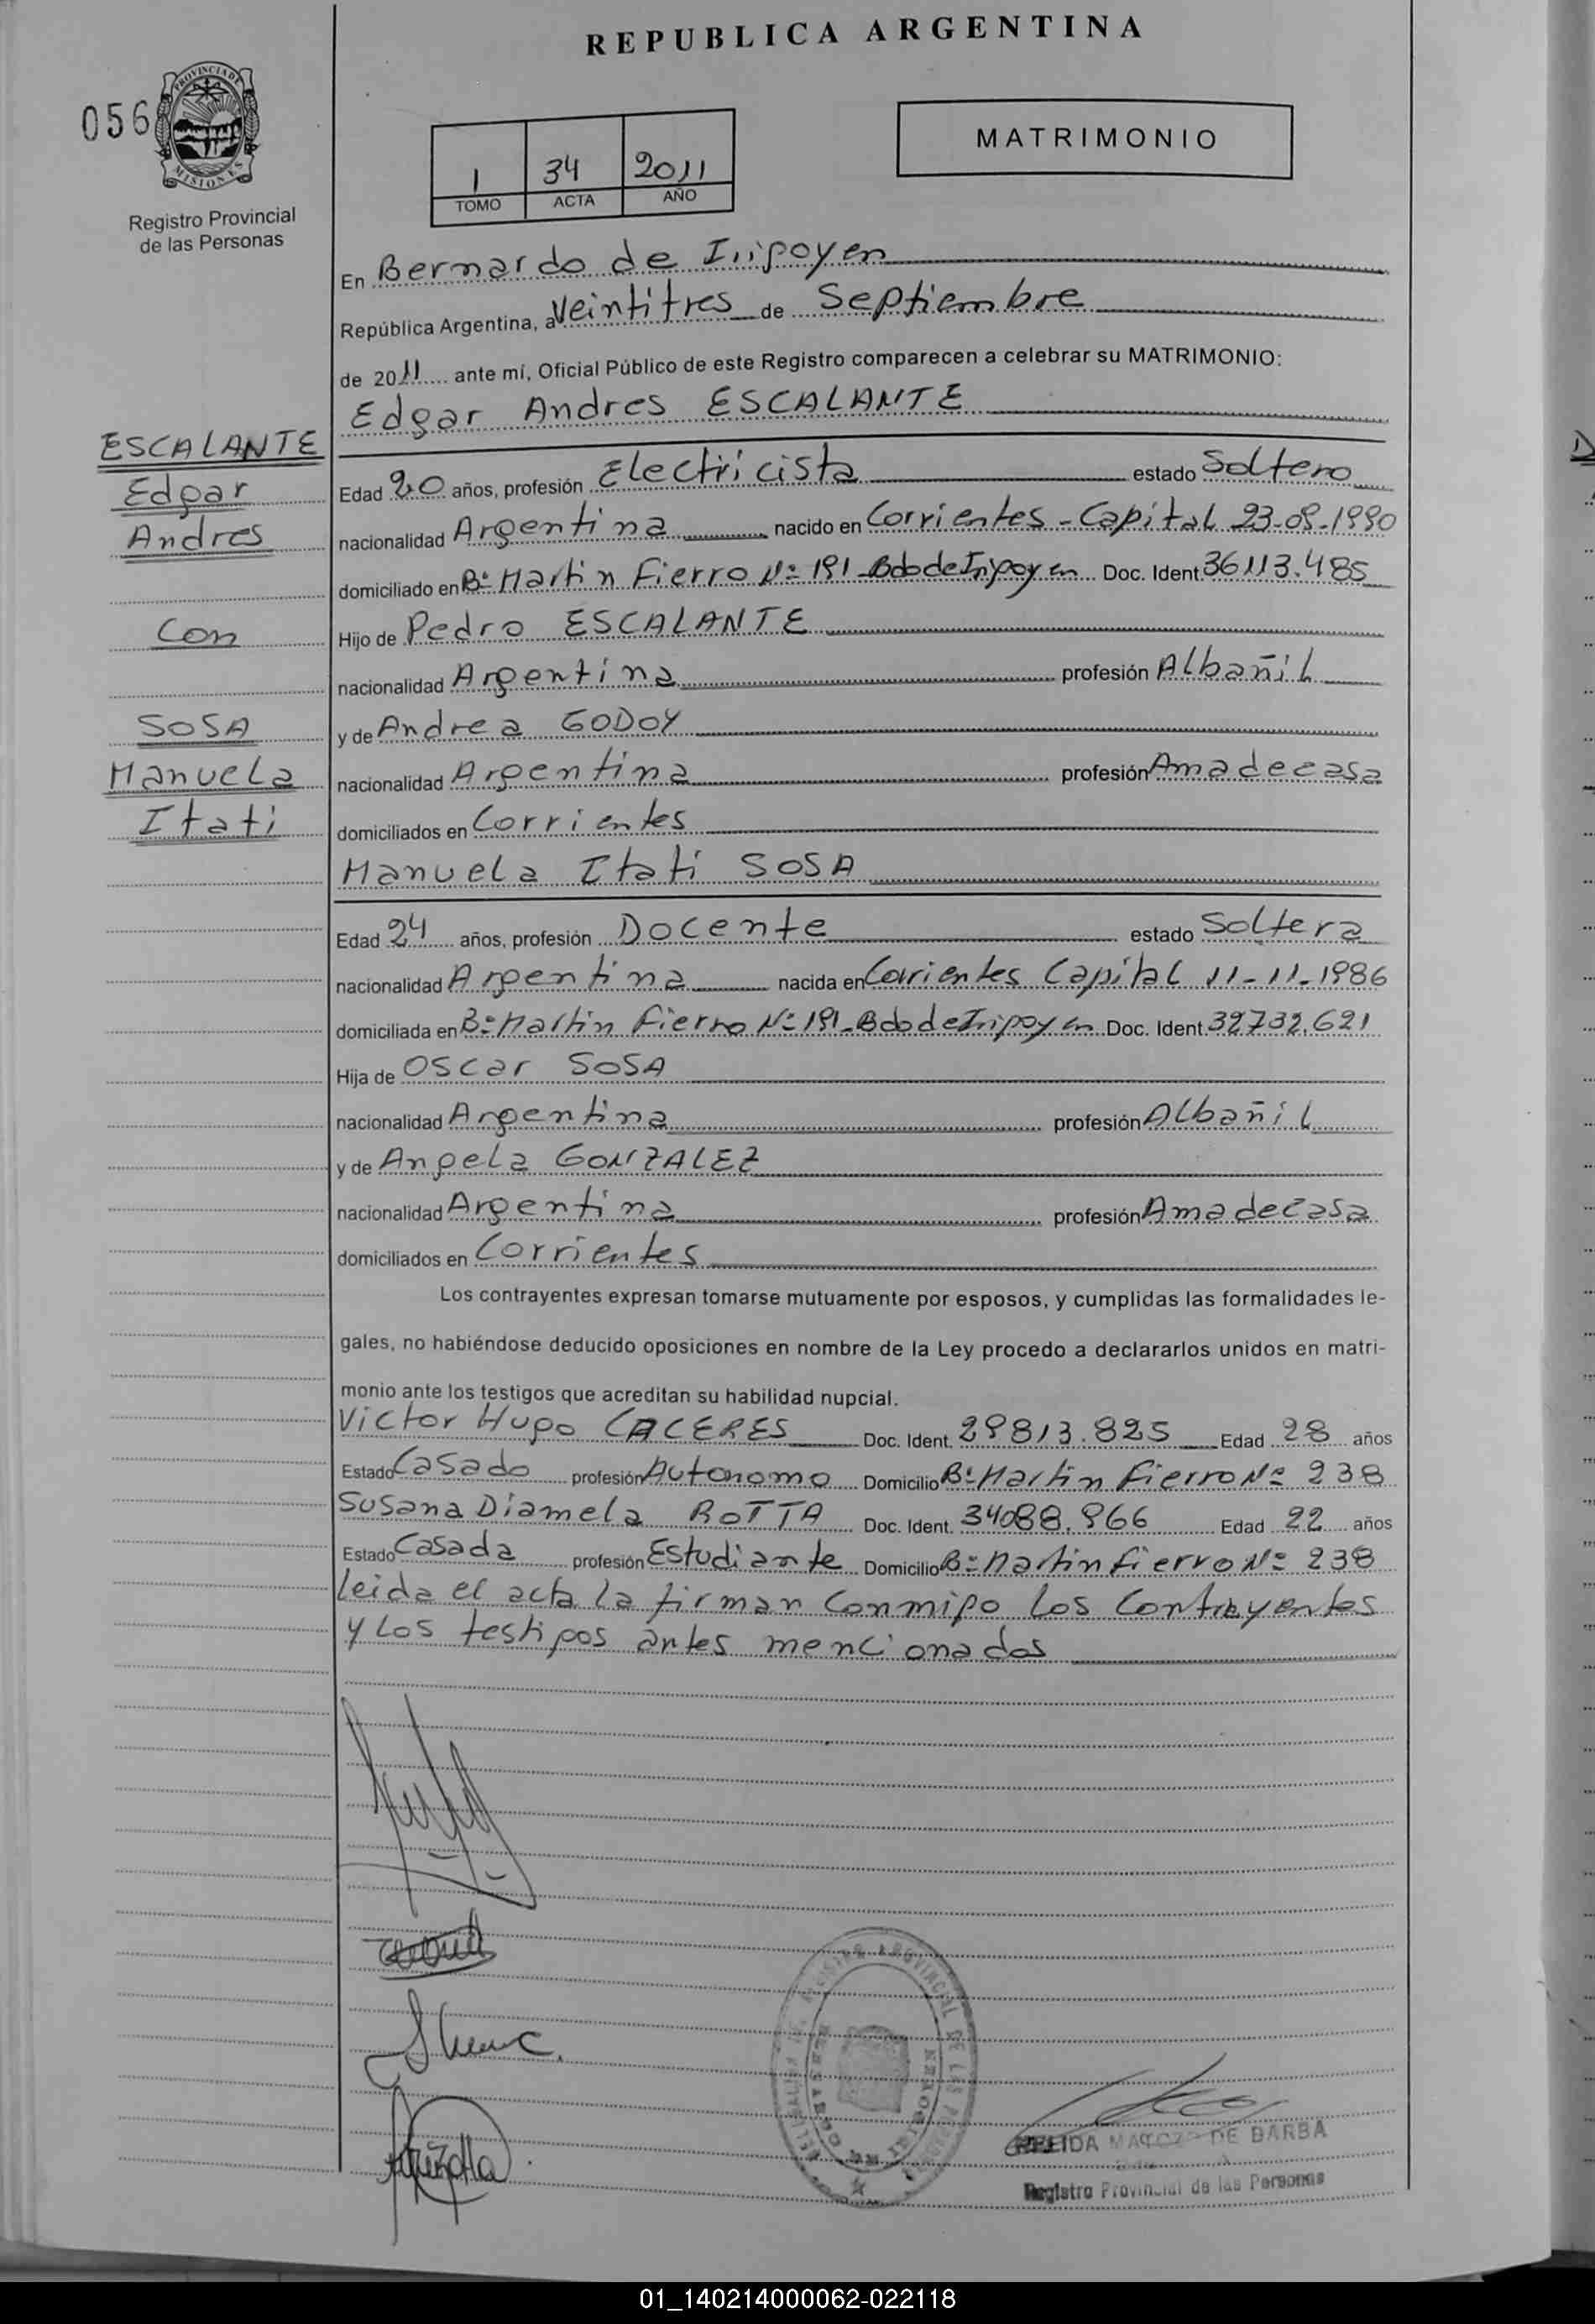 REPUBLICA ARGENTINA
056
PROVINCIA DE
MISIONES
Registro Provincial
de las Personas
MATRIMONIO
1 34 2011
TOMO ACTA AÑO
En Bernardo de Iripoyen
República Argentina, a Veintitres de Septiembre
de 2011 ante mí, Oficial Público de este Registro comparecen a celebrar su MATRIMONIO:
Edgar Andres ESCALANTE
ESCALANTE
Edgar
Andres
Con
SOSA
Manuela
Itati
Edad 20 años, profesión Electricista estado Soltero
nacionalidad Argentina nacido en Corrientes - Capital 23-09-1990
domiciliado en Bº Martin Fierro Nº 191 - Bdo de Iripoyen Doc. Ident. 36113.485
Hijo de Pedro ESCALANTE
nacionalidad Argentina profesión Albañil
y de Andrea GODOY
nacionalidad Argentina profesión Ama de casa
domiciliados en Corrientes
Manuela Itati SOSA
Edad 24 años, profesión Docente estado Soltera
nacionalidad Argentina nacida en Corrientes Capital 11-11-1986
domiciliada en Bº Martin Fierro Nº 191 - Bdo de Iripoyen Doc. Ident. 32732.621
Hija de Oscar SOSA
nacionalidad Argentina profesión Albañil
y de Angela GONZALEZ
nacionalidad Argentina profesión Ama de Casa
domiciliados en Corrientes
Los contrayentes expresan tomarse mutuamente por esposos, y cumplidas las formalidades le-
gales, no habiéndose deducido oposiciones en nombre de la Ley procedo a declararlos unidos en matri-
monio ante los testigos que acreditan su habilidad nupcial.
Victor Hugo CACERES Doc. Ident. 29813.825 Edad 28 años
Estado Casado profesión Autonomo Domicilio Bº Martin Fierro Nº 238
Susana Diamela ROTTA Doc. Ident. 34088.966 Edad 22 años
Estado Casada profesión Estudiante Domicilio Bº Martin Fierro Nº 238
Leida el acta la firman conmigo los Contrayentes
y los testigos antes mencionados
DE BARBA
Registro Provincial de las Personas
01_140214000062-022118